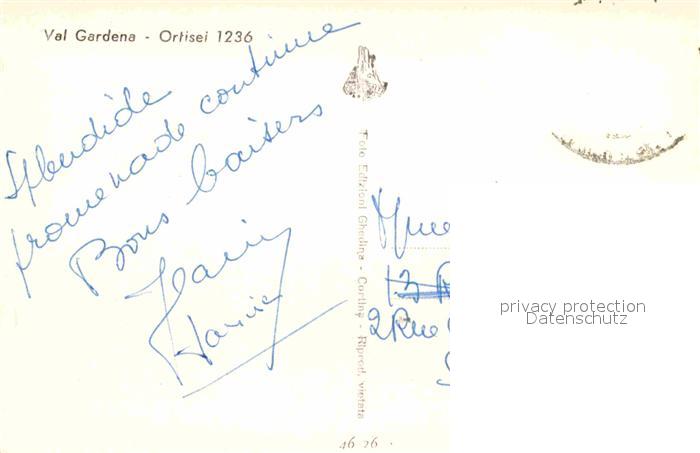 Val Gardena - Ortisei 1236
Splendide
promenade continue
Bons baisers
Foto Edizioni Ghedina - Cortina - Riprod. vietata
Mme
13
2 Rue
privacy protection
Datenschutz
46 26